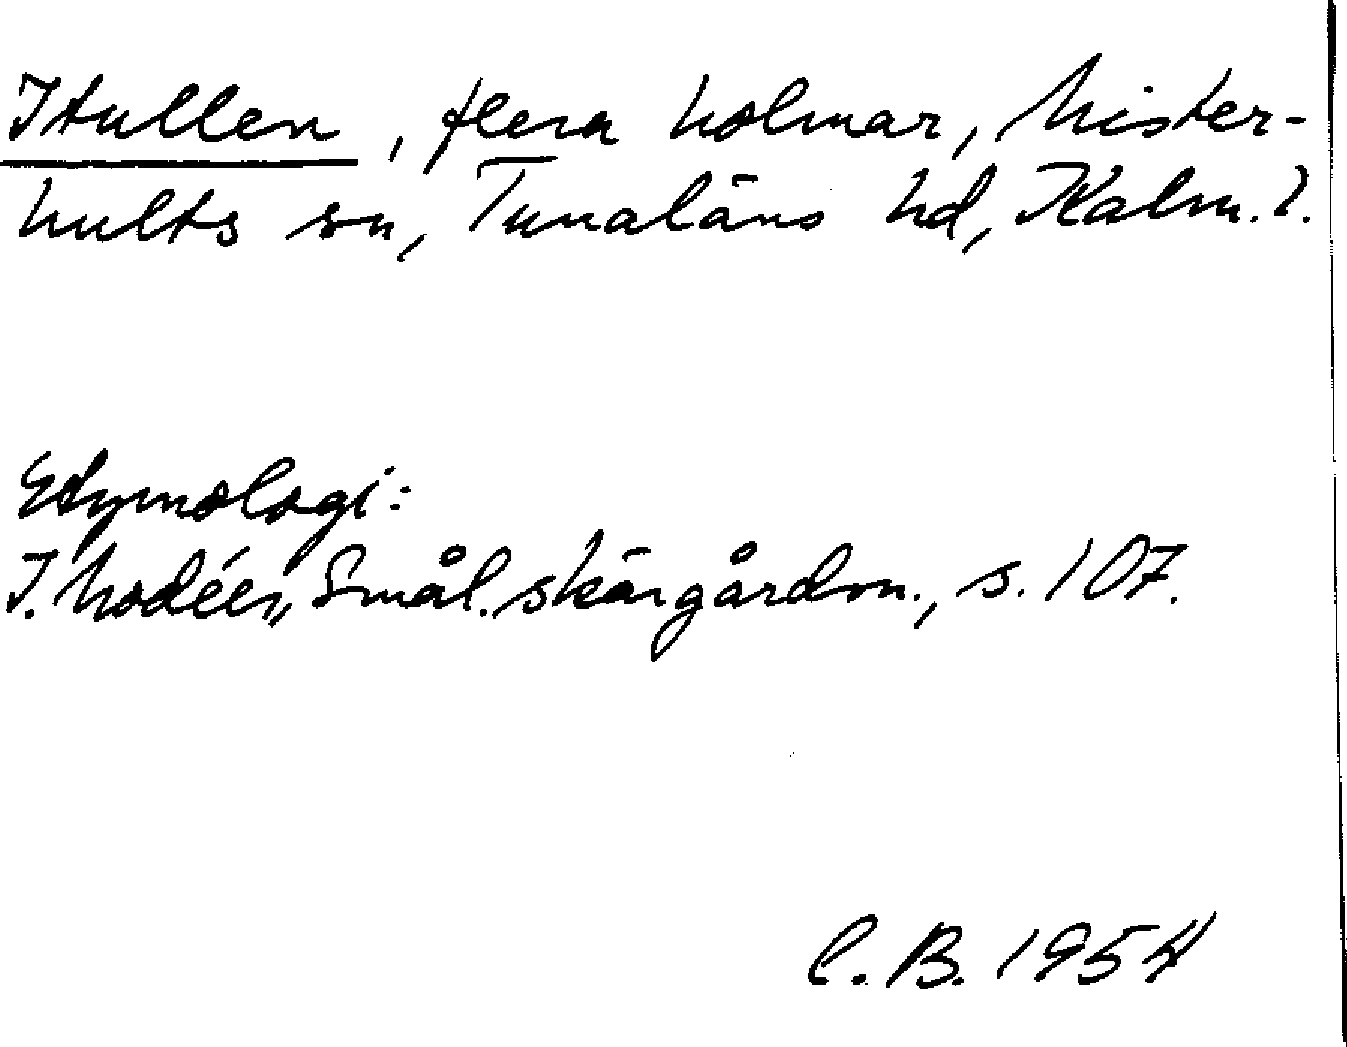 Itullen, flera holmar, Mister-
hults sn, Tunaläns hd, Kalm. l.
Etymologi:
I. Modéer, Smål. skärgårdsn., s. 107.
C. B. 1954